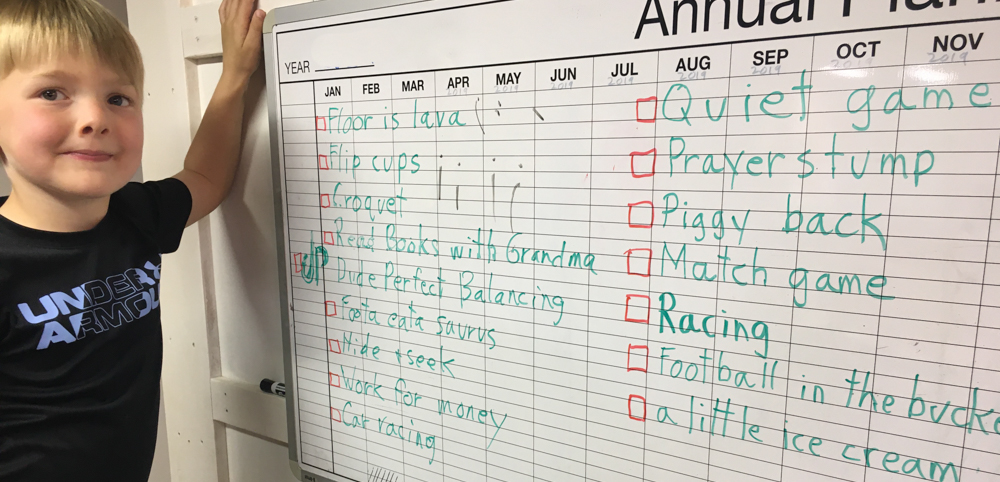 Annual Plan
YEAR
JAN FEB MAR APR MAY JUN JUL AUG SEP OCT NOV
2019 2019 2019 2019 2019 2019 2019
Floor is lava
Flip cups
Croquet
Read Books with Grandma
UP Dude Perfect Balancing
Foota eata saurus
Hide + seek
Work for money
Car racing
Quiet game
Prayer stump
Piggy back
Match game
Racing
Football in the bucke
a little ice cream
UNDER
ARMOU